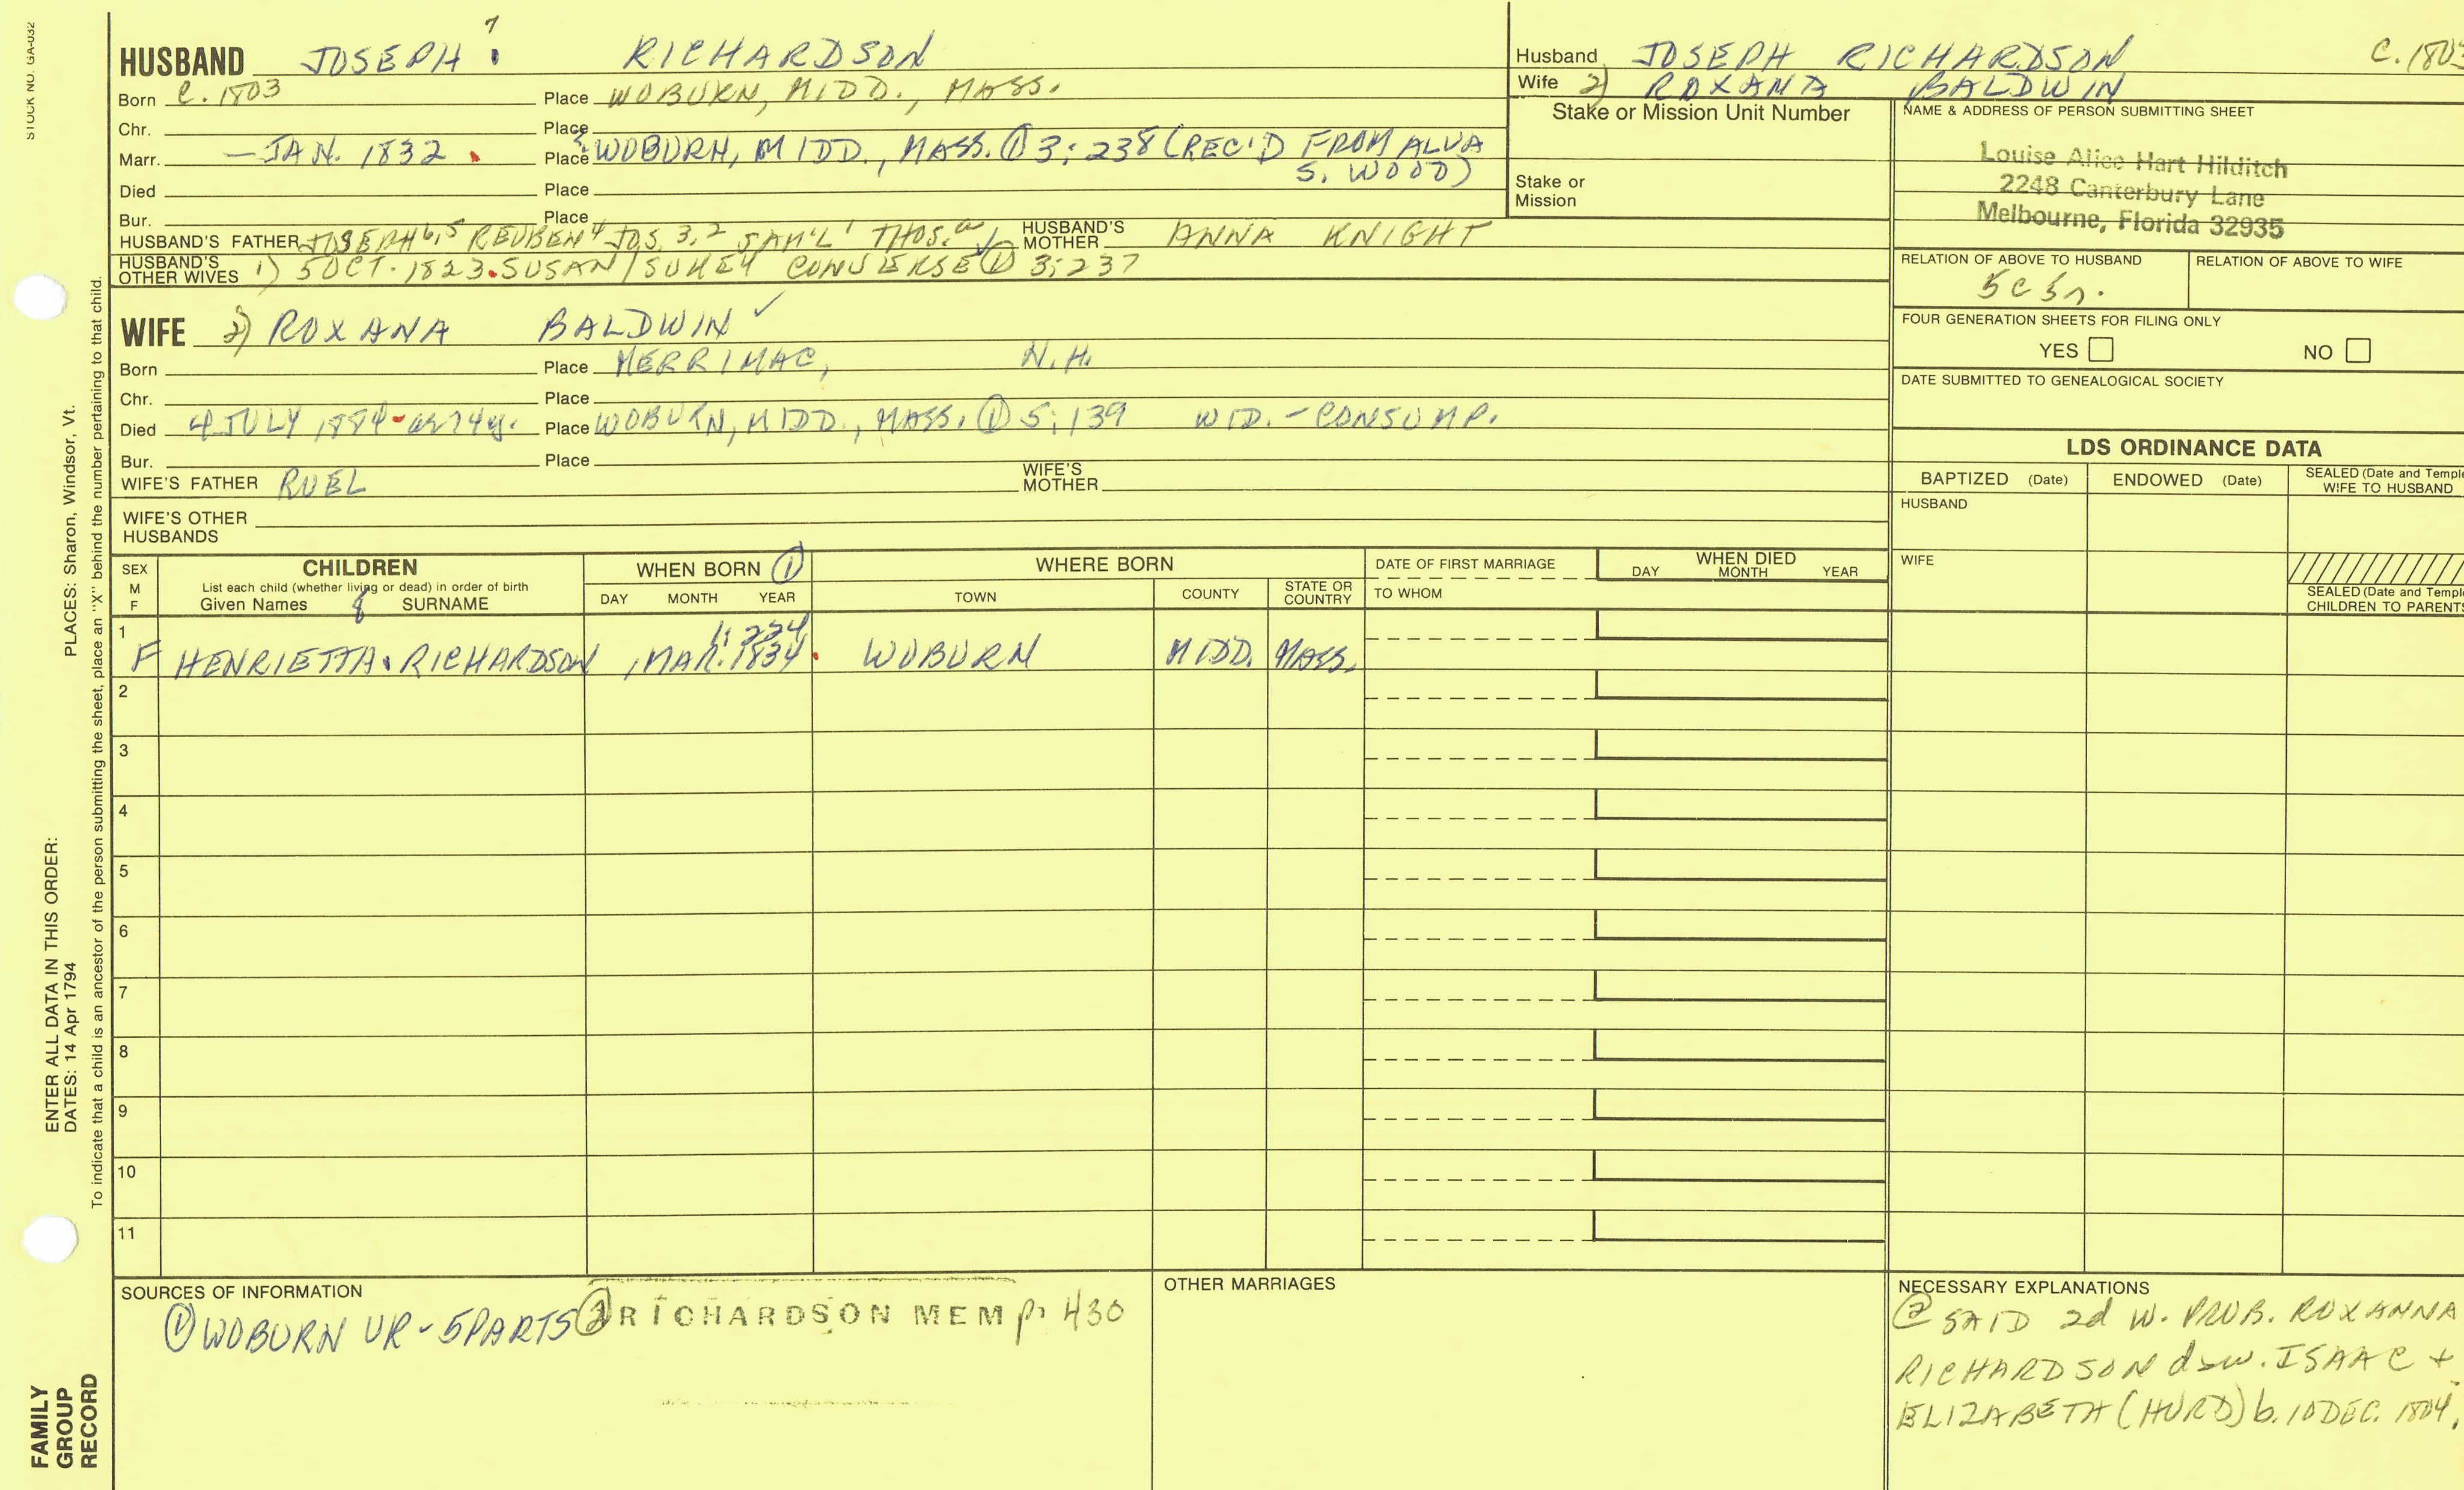 STOCK NO. GA-032
HUSBAND JOSEPH 7 RICHARDSON
Born C. 1803 Place WOBURN, MIDD., MASS.
Chr. Place
Marr. — JAN. 1832 Place WOBURN, MIDD., MASS. ① 3:238 (REC'D FROM ALVA
S. WOOD)
Died Place
Bur. Place
HUSBAND'S FATHER JOSEPH 6,5 REUBEN 4 JOS. 3,2 SAM'L 1 THOS. HUSBAND'S MOTHER ANNA KNIGHT
HUSBAND'S OTHER WIVES 1) 5 OCT. 1823 SUSAN/SUKEY CONVERSE ① 3:237
WIFE 2) ROXANA BALDWIN ✓
Born Place MERRIMAC, N.H.
Chr. Place
Died 4 JULY 1884 - ae 74y. Place WOBURN, MIDD., MASS. ① 5:139 WID. - CONSUMP.
Bur. Place
WIFE'S FATHER RUEL WIFE'S MOTHER
WIFE'S OTHER HUSBANDS
Husband JOSEPH RICHARDSON C. 1803
Wife 2) ROXANA BALDWIN
Stake or Mission Unit Number
Stake or
Mission
NAME & ADDRESS OF PERSON SUBMITTING SHEET
Louise Alice Hart Hilditch
2248 Canterbury Lane
Melbourne, Florida 32935
RELATION OF ABOVE TO HUSBAND RELATION OF ABOVE TO WIFE
5c 5r.
FOUR GENERATION SHEETS FOR FILING ONLY
YES NO
DATE SUBMITTED TO GENEALOGICAL SOCIETY
LDS ORDINANCE DATA
BAPTIZED (Date) ENDOWED (Date) SEALED (Date and Temple
WIFE TO HUSBAND
HUSBAND
WIFE
SEALED (Date and Temple
CHILDREN TO PARENTS
SEX
M
F
CHILDREN
List each child (whether living or dead) in order of birth
Given Names SURNAME
WHEN BORN ①
DAY MONTH YEAR
WHERE BORN
TOWN COUNTY STATE OR COUNTRY
DATE OF FIRST MARRIAGE
TO WHOM
WHEN DIED
DAY MONTH YEAR
1 1:224
F HENRIETTA RICHARDSON , MAR. 1834 WOBURN MIDD. MASS.
2
3
4
5
6
7
8
9
10
11
SOURCES OF INFORMATION
① WOBURN VR - 5 PARTS ② RICHARDSON MEM p. 430
OTHER MARRIAGES
NECESSARY EXPLANATIONS
② SAID 2d W. PROB. ROXANNA
RICHARDSON d>w. ISAAC +
ELIZABETH (HURD) b. 10 DEC. 1804.
PLACES: Sharon, Windsor, Vt.
To indicate that a child is an ancestor of the person submitting the sheet, place an "X" behind the number pertaining to that child.
ENTER ALL DATA IN THIS ORDER:
DATES: 14 Apr 1794
FAMILY
GROUP
RECORD